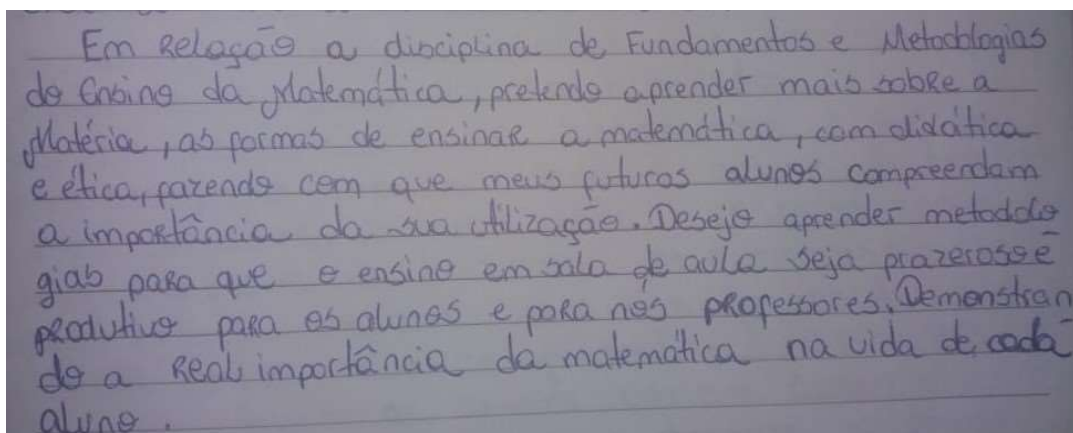 Em Relação a disciplina de Fundamentos e Metodologias
do Ensino da Matemática, pretendo aprender mais sobre a
Matéria, as formas de ensinar a matemática, com didática
e ética, fazendo com que meus futuros alunos compreendam
a importância da sua utilização. Desejo aprender metodolo
gias para que o ensino em sala de aula seja prazeroso e
produtivo para os alunos e para nós professores. Demonstran
do a Real importância da matemática na vida de cada
aluno.